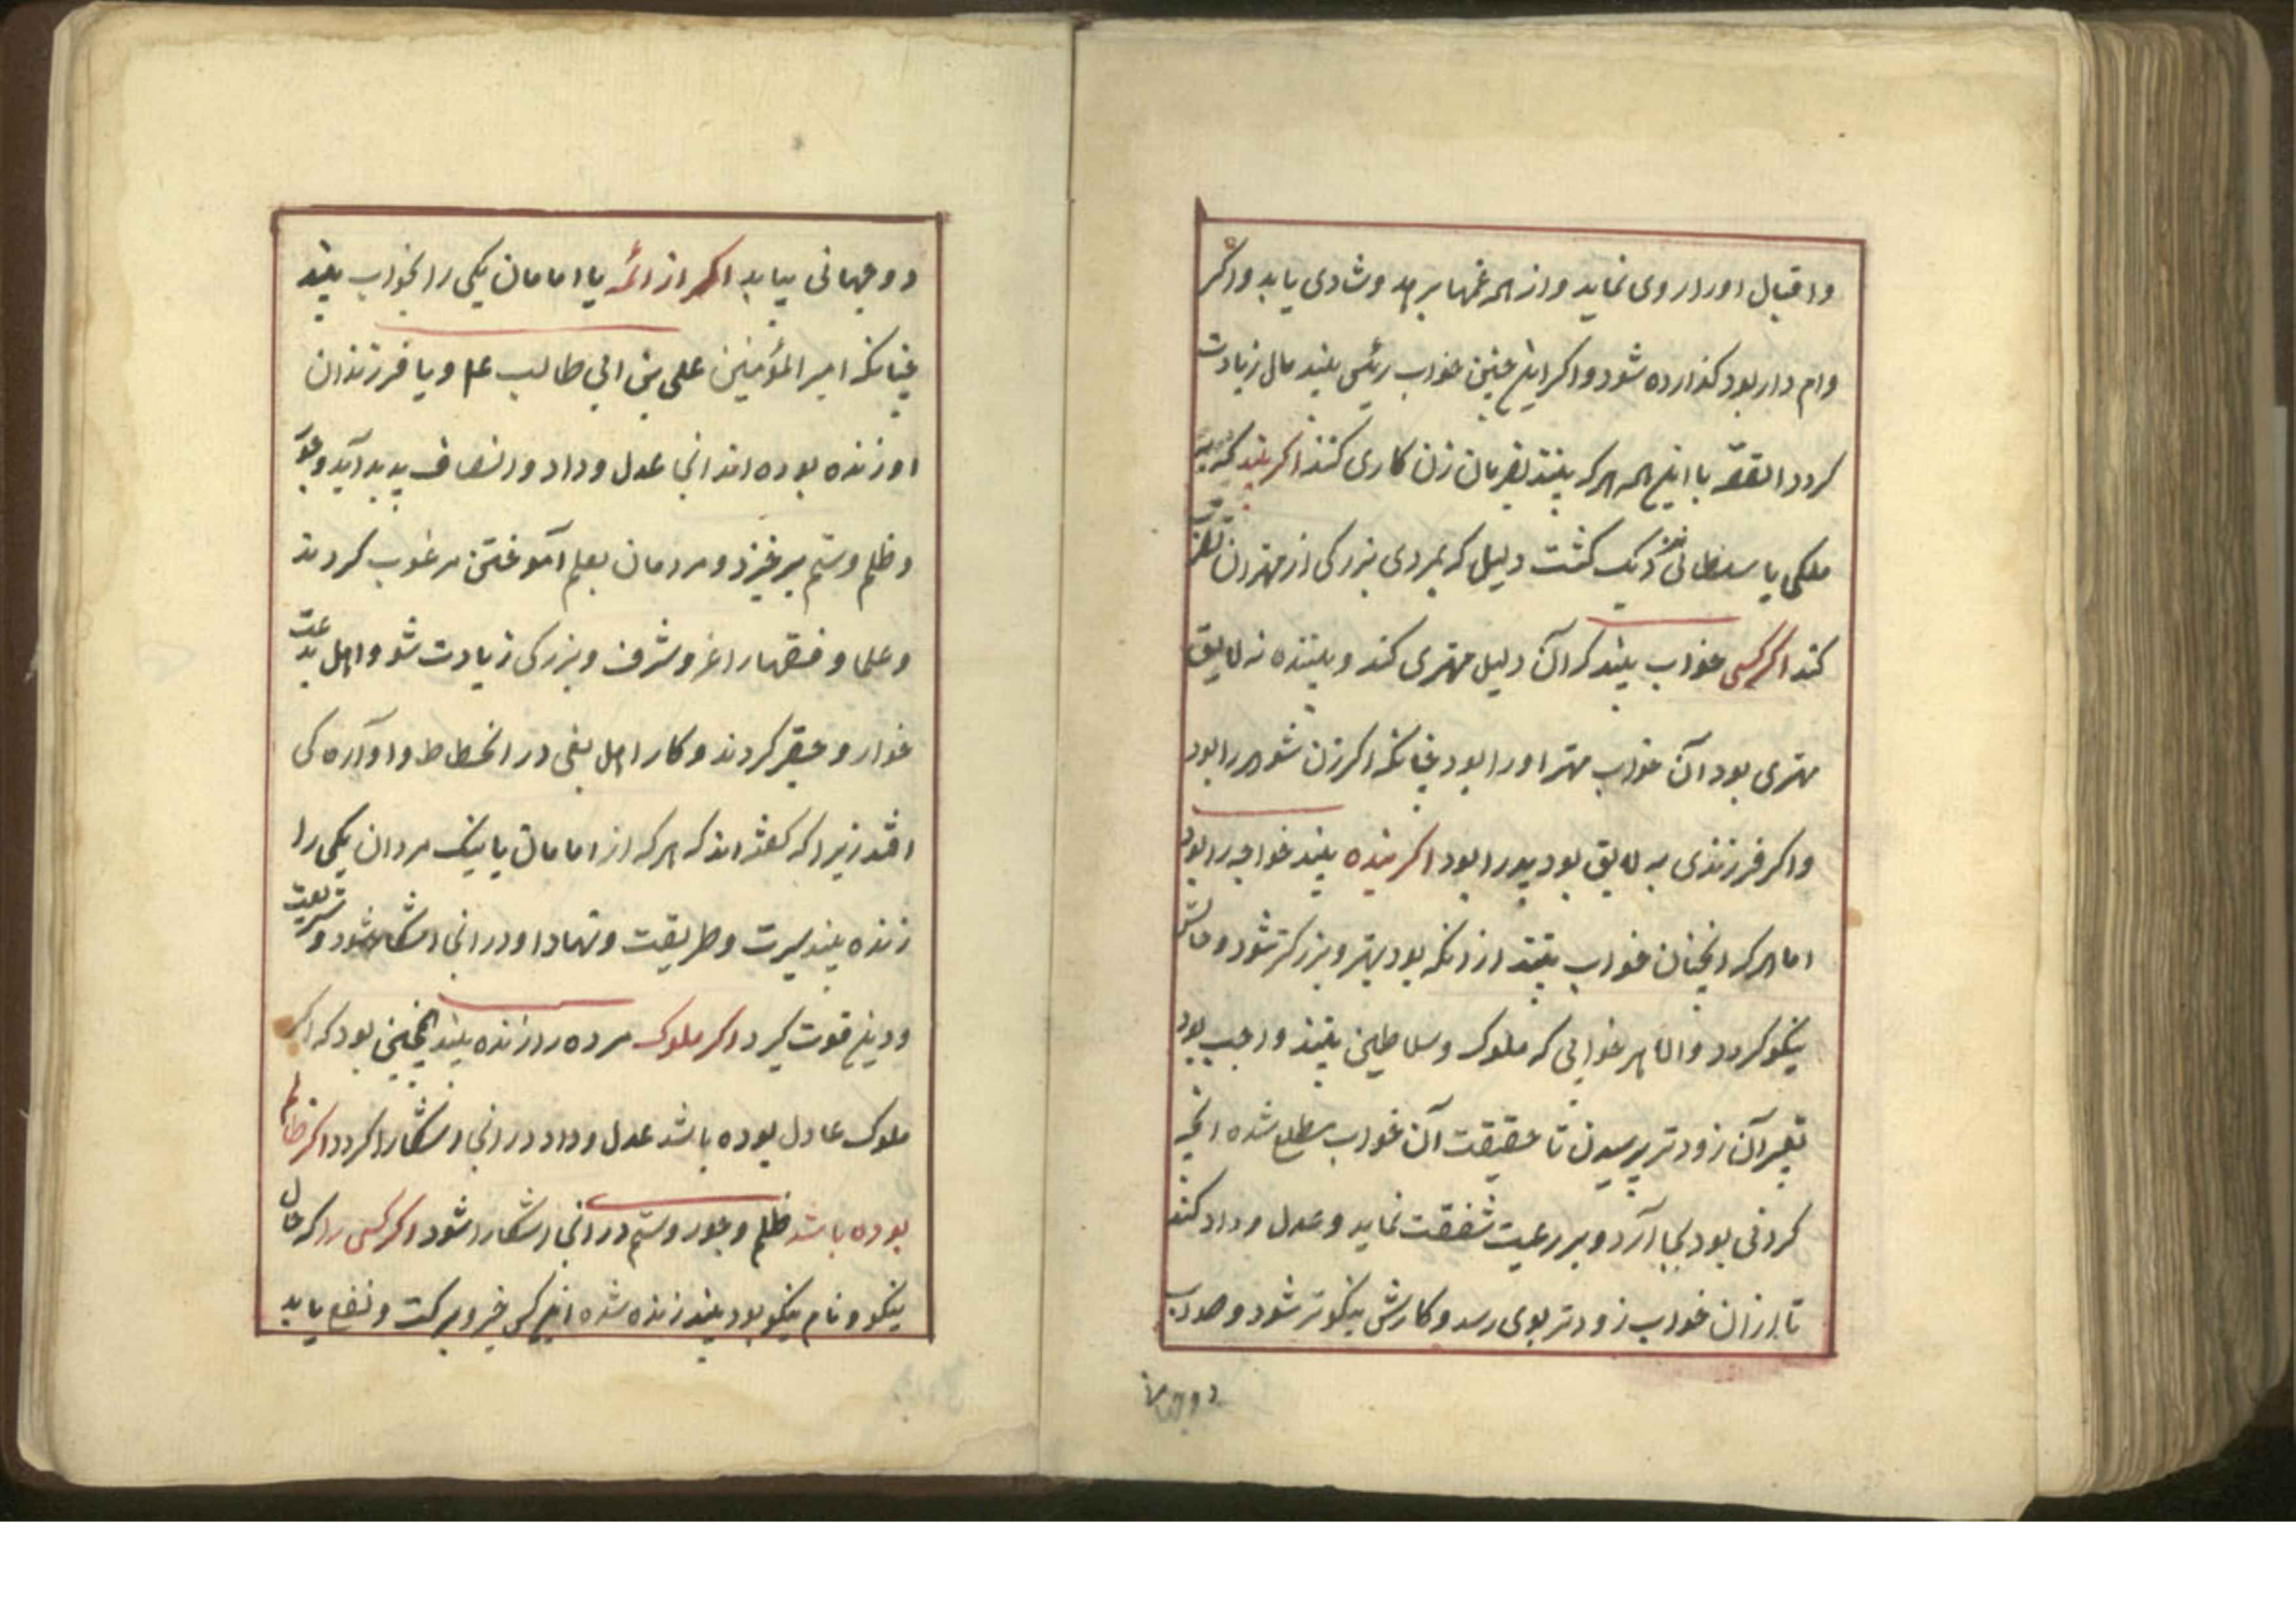 واقبال اورا روی نماید واز همه غمها برهد وشادی یابد واکر
وام دار بود کذارده شود واکر این چنین خواب رئیسی بیند مال زیادت
کردد القصّه با این همه هرکه بیند بفرمان زن کاری کند اکر بیند که
ملکی یا سلطانی دیک کشت دلیل که بمردی بزرکی از مهتران
کند اکر کسی خواب بیند کر آن دلیل مهتری کند و بیننده نه لایق
مهتری بود آن خواب مهتر اورا بود چنانکه اکر زن شوهر را بود
واکر فرزندی نه لایق بود پدر را بود اکر بنده بیند خواجه را بود
اما هرکه انچنان خواب بیند از انکه بود بهتر و بزرکتر شود و حالش
نیکو کردد والا هر خوابی که ملوک و سلاطین بینند واجب بود
تعبیر آن زودتر پرسیدن تا حقیقت آن خواب مطلع شده انچه
کردنی بود بجا آرد و بر رعیت شفقت نماید وعدل و داد کند
تا از ان خواب زودتر بوی رسد و کارش نیکوتر شود و صواب
دوجهانی
دوجهانی بیابد اکر از ائمّه یا امامان یکی را بخواب بیند
چنانکه امیر المؤمنین علی بن ابی طالب ع‍م ویا فرزندان
او زنده بوده اند انجا عدل و داد وانصاف پدید آید وجور
وظلم وستم برخیزد ومردمان بعلم آموختن مرغوب کردند
وعلما وفقهارا عز وشرف وبزرکی زیادت شو واهل بدعت
خوار وحقیر کردند وکار اهل بغی در انحطاط واوآره کی
افتد زیراکه کفته اند که هرکه از امامان یا نیک مردان یکی را
زنده بیند سیرت وطریقت ونهاد او در انجا اشکارا شود وشریعت
ودین قوت کیرد اکر ملوک مرده را زنده بیند انچنین بود که اکر
ملوک عادل بوده باشد عدل وداد در انجا اشکارا کردد اکر ظالم
بوده باشد ظلم وجور وستم در انجا اشکارا شود اکر کسی را که حال
نیکو ونام نیکو بود بیند زنده شده این کس خیر وبرکت ونفع یابد